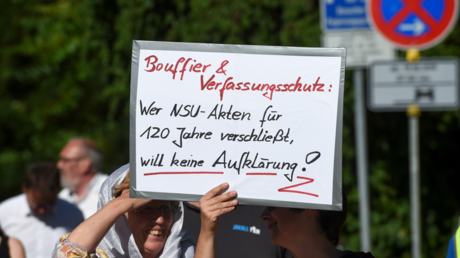 Bouffier &
Verfassungsschutz:
Wer NSU-Akten für
120 Jahre verschließt,
will keine Aufklärung!